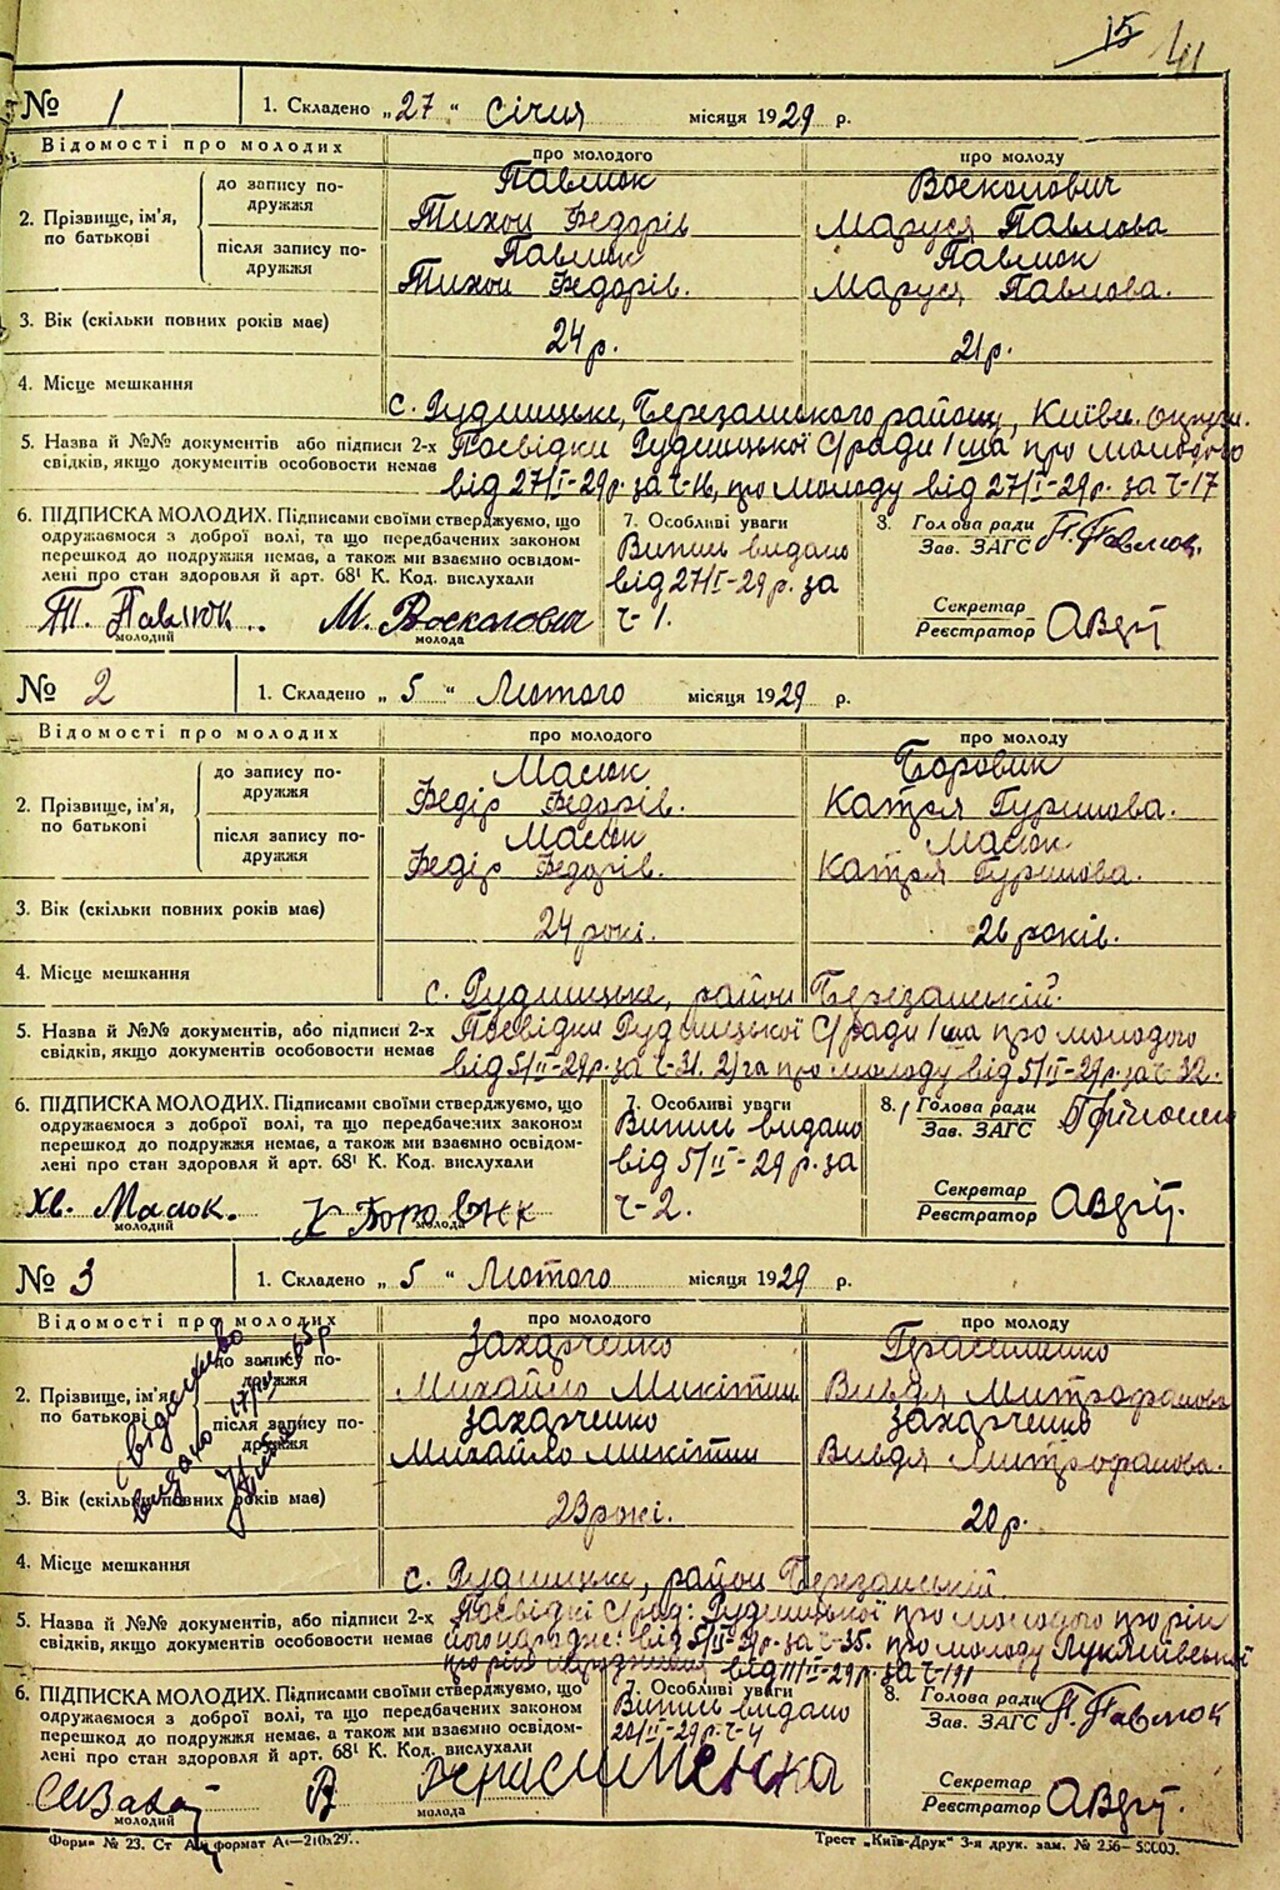 15 41
№ 1 1. Складено „27“ Січня місяця 1929 р.
Відомості про молодих про молодого про молоду
2. Прізвище, ім'я, по батькові
до запису подружжя Павлюк Восколович
Тихон Федорів Маруся Павлова
після запису подружжя Павлюк Павлюк
Тихон Федорів. Маруся Павлова.
3. Вік (скільки повних років має) 24 р. 21 р.
4. Місце мешкання с. Рудницьке, Березанського району, Київськ. округи.
5. Назва й №№ документів або підписи 2-х Посвідки Рудницької С/ради 1 ша про молодого
свідків, якщо документів особовости немає від 27/I-29р. за ч-16, про молоду від 27/I-29р. за ч-17
6. ПІДПИСКА МОЛОДИХ. Підписами своїми стверджуємо, що
одружаємося з доброї волі, та що передбачених законом
перешкод до подружжя немає, а також ми взаємно освідом-
лені про стан здоровля й арт. 68¹ К. Код. вислухали
Т. Павлюк.. М. Восколович
молодий молода
7. Особливі уваги
Випись видано
від 27/I-29 р. за
ч-1.
8. Голова ради
Зав. ЗАГС П. Павлюк.
Секретар
Реєстратор
№ 2 1. Складено „5“ Лютого місяця 1929 р.
Відомості про молодих про молодого про молоду
2. Прізвище, ім'я, по батькові
до запису подружжя Масюк Боровик
Федір Федорів. Катря Гуринова.
після запису подружжя Масюк Масюк
Федір Федорів. Катря Гуринова.
3. Вік (скільки повних років має) 24 рокі. 26 років.
4. Місце мешкання с. Рудницьке, район Березанській.
5. Назва й №№ документів, або підписи 2-х Посвідки Рудницької С/ради 1 ша про молодого
свідків, якщо документів особовости немає від 5/II-29р. за ч-31. 2) га про молоду від 5/II-29р. за ч-32.
6. ПІДПИСКА МОЛОДИХ. Підписами своїми стверджуємо, що
одружаємося з доброї волі, та що передбачених законом
перешкод до подружжя немає, а також ми взаємно освідом-
лені про стан здоровля й арт. 68¹ К. Код. вислухали
Хв. Масюк. К Боровик
молодий молода
7. Особливі уваги
Випись видано
від 5/II-29 р. за
ч-2.
8. Голова ради
Зав. ЗАГС
Секретар
Реєстратор
№ 3 1. Складено „5“ Лютого місяця 1929 р.
Відомості про молодих про молодого про молоду
2. Прізвище, ім'я, по батькові
до запису подружжя Захарченко Герасименко
Михайло Микітин Вивдя Митрофанова
після запису подружжя Захарченко Захарченко
Михайло Микітин Вивдя Митрофанова.
Свідоцтво
видано
3. Вік (скільки повних років має) 23 рокі. 20 р.
4. Місце мешкання с. Рудницьке, район Березанській.
5. Назва й №№ документів, або підписи 2-х Посвідкі С/рад: Рудницької про молодого про рік
свідків, якщо документів особовости немає його народже: від 5/II-29р. за ч-35. про молоду Лукяшівської
про рік народження від 11/II-29р. за ч-191
6. ПІДПИСКА МОЛОДИХ. Підписами своїми стверджуємо, що
одружаємося з доброї волі, та що передбачених законом
перешкод до подружжя немає, а також ми взаємно освідом-
лені про стан здоровля й арт. 68¹ К. Код. вислухали
В Герасименка
молодий молода
7. Особливі уваги
Випись видано
8. Голова ради
Зав. ЗАГС П. Павлюк
Секретар
Реєстратор
Форма № 23. Ст формат
Трест „Київ-Друк“ 3-я друк. зам. № 256–50000.